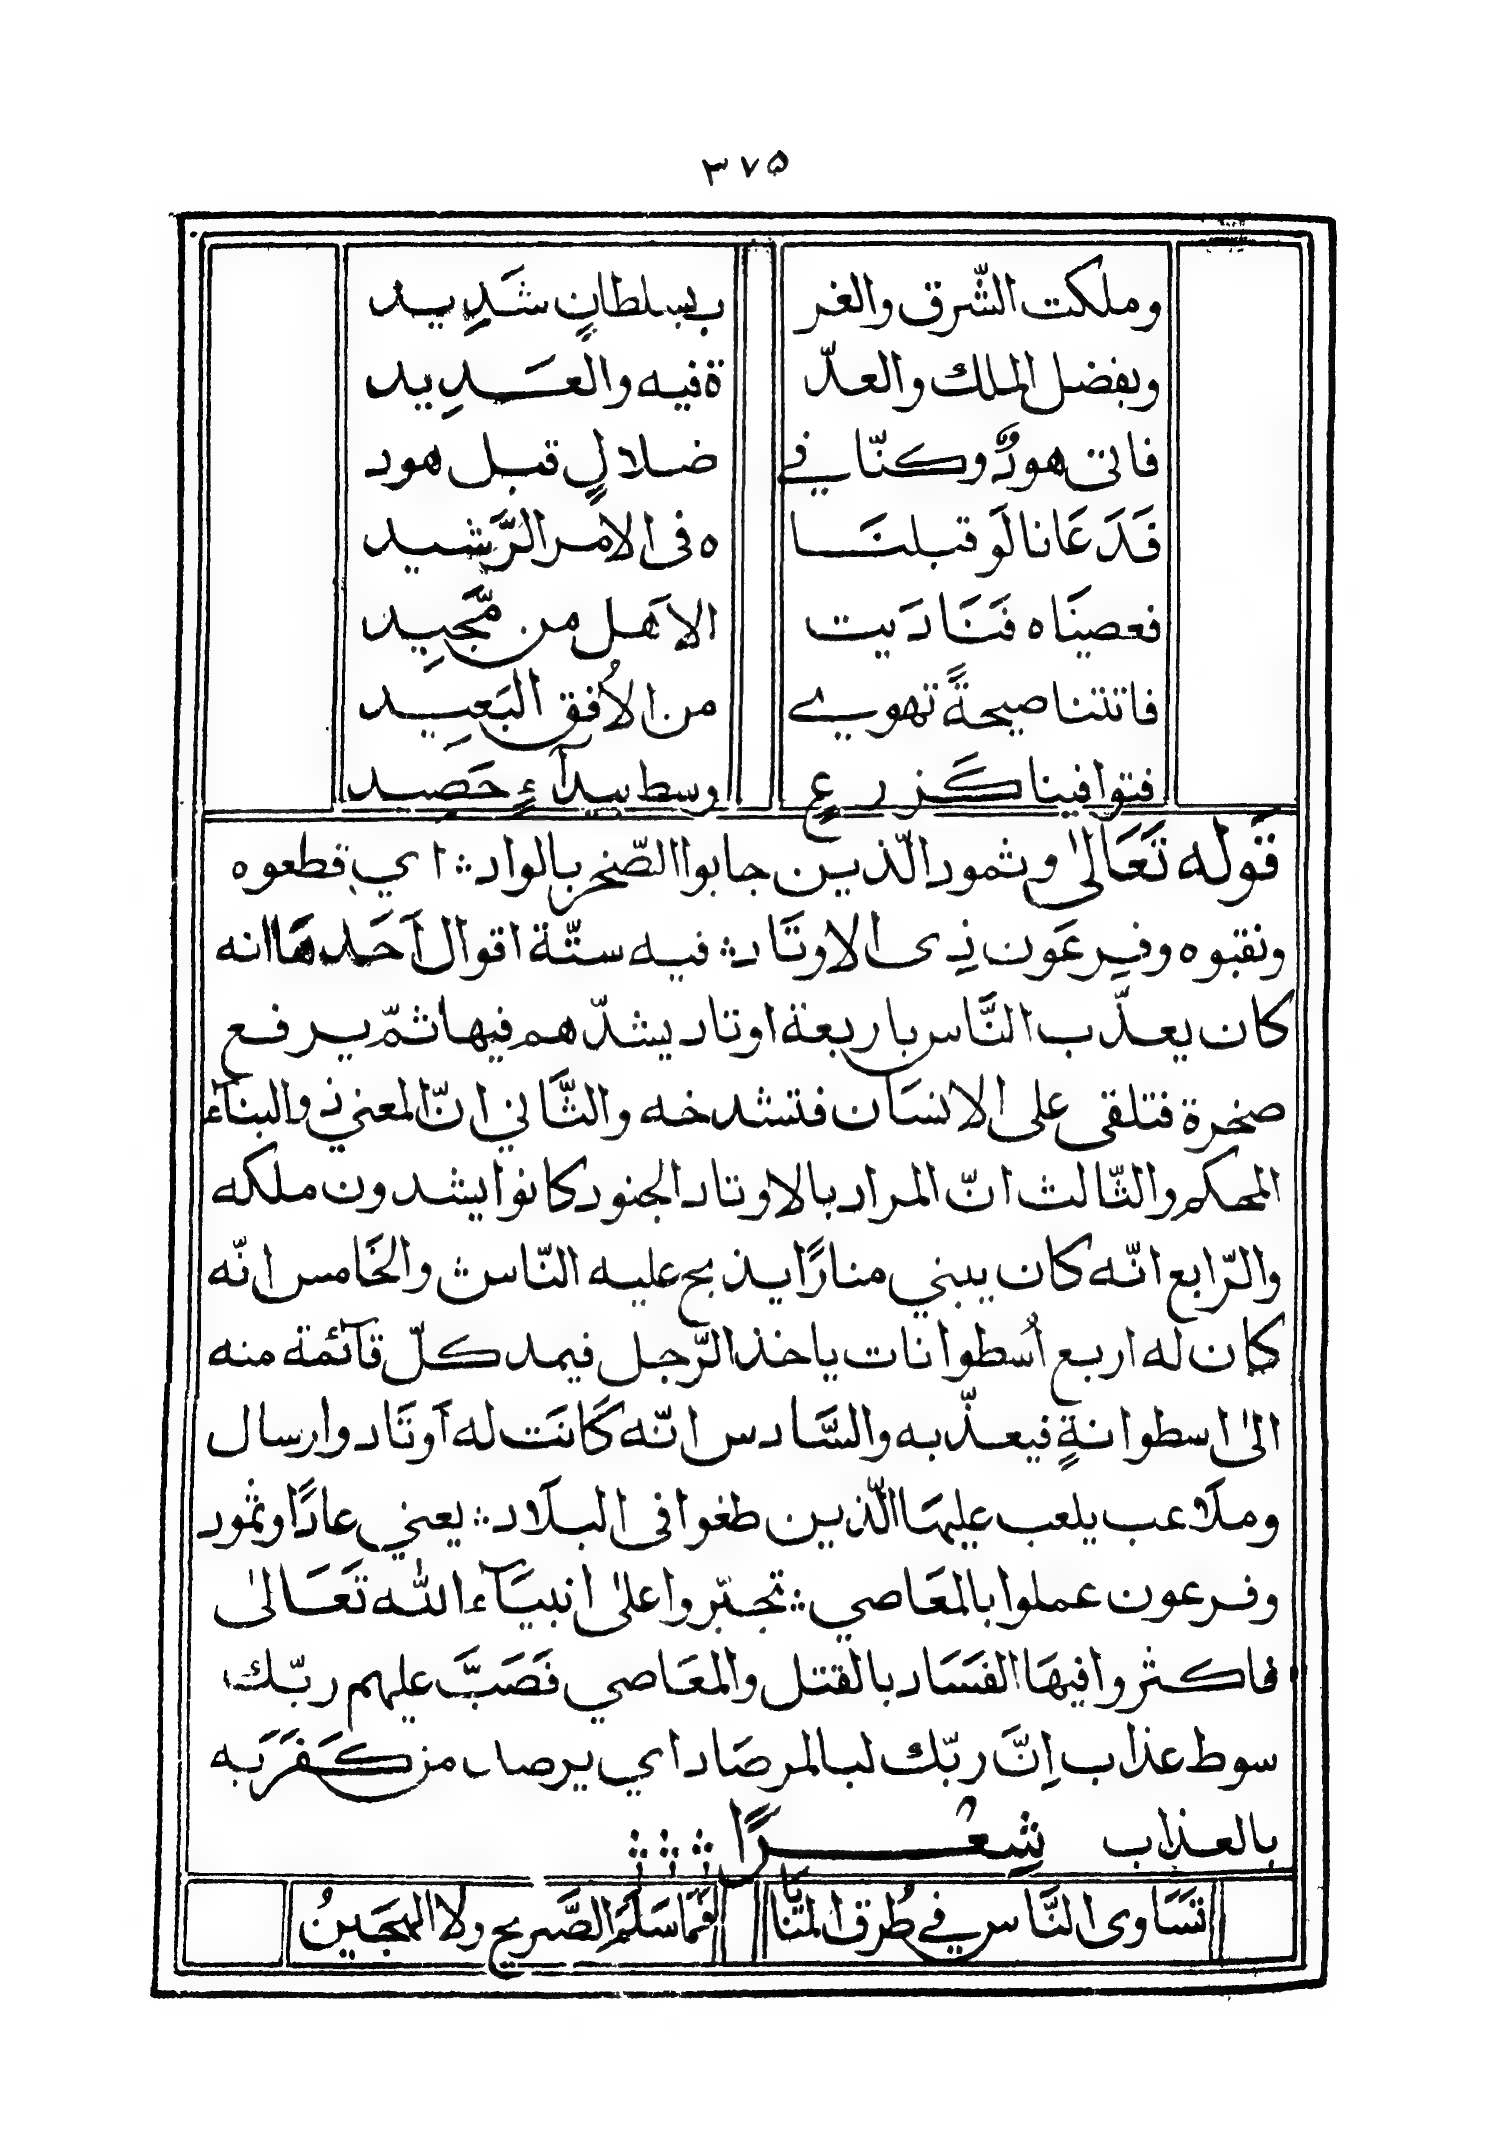 ٣٧۵
وملكت الشّرق والغر بسلطانٍ شَدِيد
وبفضل الملك والعدّ ةفيه والعَدِيد
فاتى هودٌ وكنّا في ضلالٍ قبل هود
فَدَعَانا لَو قبلنَا ه فى الامر الرَّشيد
فعصينَاه فَنَادَيت الا هَل من مَّجِيد
فاتتنا صيحةً تهوي من الاُفق البَعِيد
فتوافينا كَزرعٍ وسط بيدآءٍ حَصِيد
قَوله تَعَالىٰ وثمود الّذين جابوا الصّخر بالواد ؞ اي قطعوه
ونقبوه وفِرعَون ذِى الاوتَاد ؞ فيه ستّة اقوال اَحَدهَا انه
كان يعذّب النَّاس باربعة اوتاد يشدّهم فيها ثمّ يرفع
صخرة فتلقى على الانسَان فتشدخه والثَّاني انّ المعني ذو البنآء
المحكم والثّالث انّ المراد بالاوتاد الجنود كانوا يشدون ملكه
والرّابع انّه كان يبني منارًا يذبح عليه النّاس ؞ والخَامس انّه
كان له اربع اُسطوانات ياخذ الرّجل فيمد كلّ قآئمة منه
الىٰ اسطوانةٍ فيعذّب به والسَّادس انّه كَانَت له اَوتَاد وارسال
وملَاعب يلعب عليهَا الّذين طغوا فى البلَاد ؞ يعني عادًا وثمود
وفرعون عملوا بالمعَاصي ؞ تجبّروا علىٰ انبيَآء اللّه تَعَالىٰ
فاكثروا فيهَا الفَسَاد بالقتل والمعَاصي فَصَبَّ عليهم ربّك
سوط عذاب اِنَّ ربّك لبالمرصَاد اي يرصد من كَفَرَ به
بالعذاب شِعرًا ؞ ؞ ؞
تَسَاوى النَّاس في طُرق المنَايَا فَمَا سَلَمَ الصَّريح ولَا الهَجَينُ